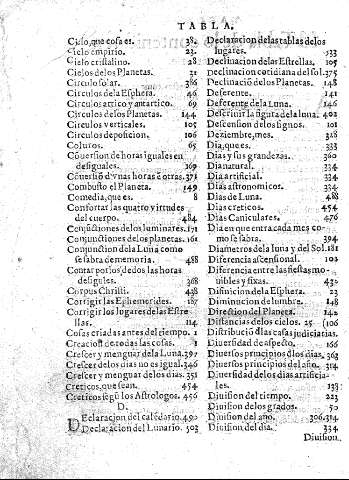 TABLA.
Cielo, que cosa es. 38.
Cielo empirio. 23.
Cielo cristalino. 28
Cielos delos Planetas. 31
Circulo solar. 386
Circulos dela Esphera. 46
Circulos artico y antartico. 69
Circulos delos Planetas. 144
Circulos verticales. 105
Circulos de posicion. 106
Coluros. 65
Cōuersion de horas iguales en
desiguales. 369
Cōuersiō d̄ vnas horas ē otras. 371
Combusto el Planeta. 149
Comedia, que es. 8
Confortar las quatro virtudes
del cuerpo. 484
Conjūctiones delos luminares. 171
Conjunctiones delos planetas. 161
Conjunctiō dela Luna como
se sabra de memoria. 488
Contar por los dedos las horas
desiguales. 368
Corpus Christi. 438
Corrigir las Ephemerides. 187
Corrigir los lugares delas Estre
llas. 114
Cosas criadas antes del tiempo. 1
Creacion de todas las cosas. 1
Crescer y menguar dela Luna. 397
Crescer delos dias no es igual. 346
Crescer y menguar delos dias. 351
Creticos, que sean. 454
Creticos segū los Astrologos. 456
D.
DEclaracion del calēdario. 490
Declaracion del Lunario. 503
Declaracion delas tablas delos
lugares. 533
Declinacion delas Estrellas. 105
Declinacion cotidiana del sol. 375
Declinaciō delos Planetas. 148
Deferente. 141
Deferente dela Luna. 146
Descriuir la figura dela luna. 402
Descension delos signos. 101
Deziembre, mes. 328
Dia, que es. 333
Dias y sus grandezas. 360
Dia natural. 334
Dia artificial. 334
Dias astronomicos. 334
Dias de Luna. 488
Dias creticos. 454
Dias Caniculares. 476
Dia en que entra cada mes co
mo se sabra. 394
Diametros dela luna y del Sol. 181
Diferencia ascensional. 102
Diferencia entre las fiestas mo-
uibles y fixas. 432
Difinicion dela Esphera. 23
Diminucion de lumbre. 148
Direction del Planeta. 142
Distancias delos cielos. 25 (106
Distribuciō dlas casas judiciarias.
Diuersidad de aspecto. 166
Diuersos principios dlos dias. 363
Diuersos principios del año. 314
Diuersidad delos dias artificia-
les. 133
Diuision del tiempo. 223
Diuision delos grados. 50
Diuision del año. 306.314
Diuision del dia. 334
Diuision.